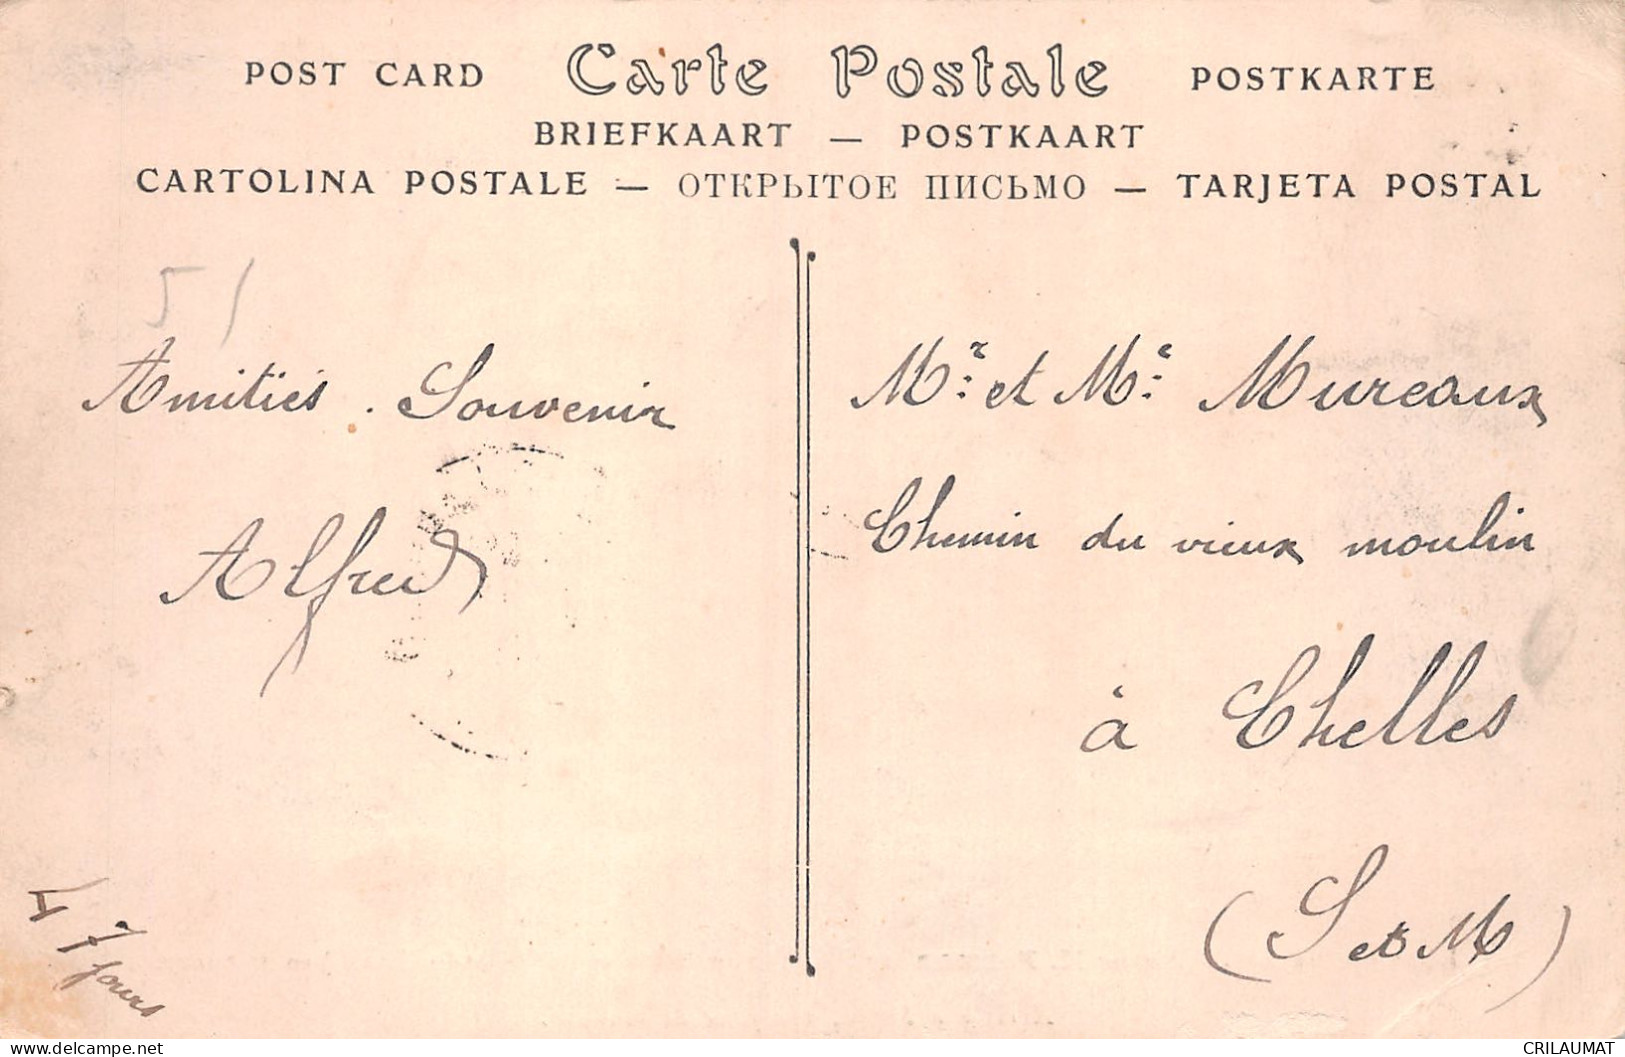 POST CARD Carte Postale POSTKARTE
BRIEFKAART — POSTKAART
CARTOLINA POSTALE — ОТКРЫТОЕ ПИСЬМО — TARJETA POSTAL
51
Amitiés. Souvenir
Alfred
Mr. et Me. Mureaux
Chemin du vieux moulin
à Chelles
(S et M)
47
jours
delcampe.net
CRILAUMAT